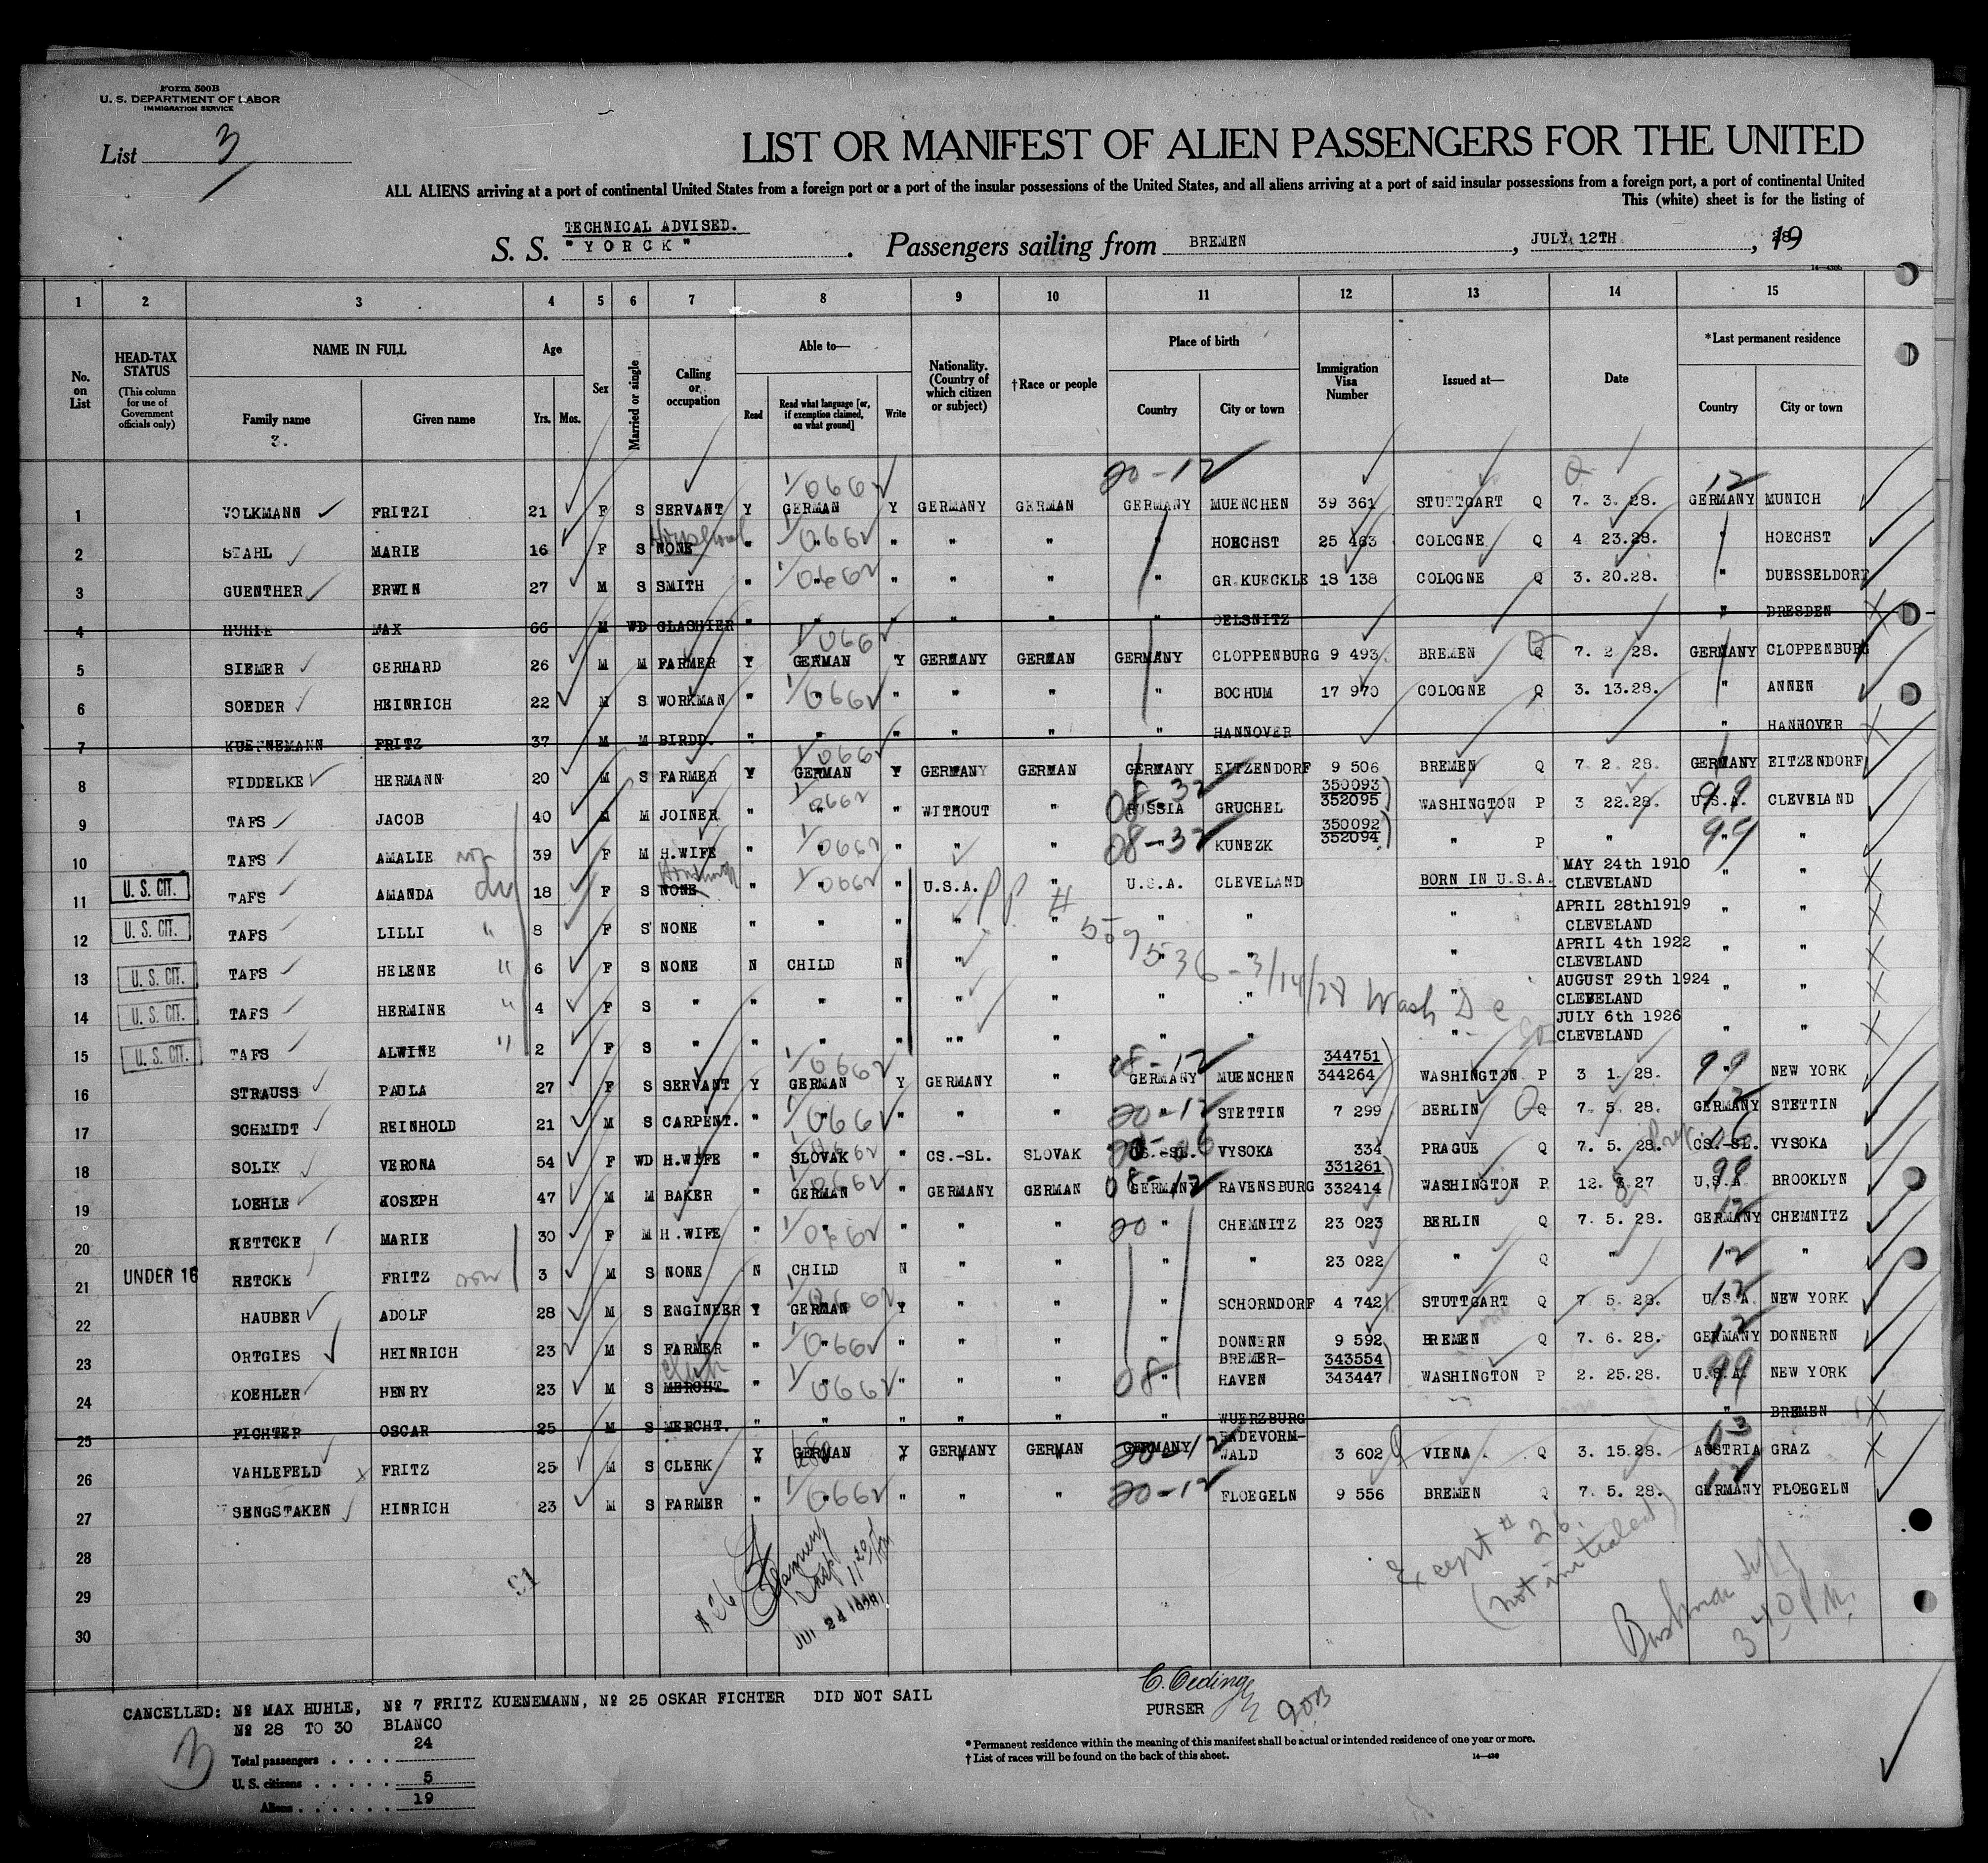 Form 500B
U. S. DEPARTMENT OF LABOR
IMMIGRATION SERVICE
List 3
LIST OR MANIFEST OF ALIEN PASSENGERS FOR THE UNITED
ALL ALIENS arriving at a port of continental United States from a foreign port or a port of the insular possessions of the United States, and all aliens arriving at a port of said insular possessions from a foreign port, a port of continental United
This (white) sheet is for the listing of
TECHNICAL ADVISED.
S. S. "YORCK". Passengers sailing from BREMEN, JULY 12TH, 1928.
14—430b
1 2 3 4 5 6 7 8 9 10 11 12 13 14 15
No. on List
HEAD-TAX STATUS (This column for use of Government officials only)
NAME IN FULL Family name Given name
3.
Age Yrs. Mos.
Sex
Married or single
Calling or occupation
Able to— Read Read what language [or, if exemption claimed, on what ground] Write
Nationality. (Country of which citizen or subject)
†Race or people
Place of birth Country City or town
Immigration Visa Number
Issued at—
Date
*Last permanent residence Country City or town
20-12 12
1 VOLKMANN FRITZI 21 F S SERVANT Y GERMAN Y GERMANY GERMAN GERMANY MUENCHEN 39 361 STUTTGART Q 7. 3. 28. GERMANY MUNICH
2 STAHL MARIE 16 F S NONE " " " " " " HOECHST 25 463 COLOGNE Q 4 23.28. " HOECHST
3 GUENTHER ERWIN 27 M S SMITH " " " " " " GR.KUECKLE 18 138 COLOGNE Q 3. 20.28. " DUESSELDORF
4 HUHLE MAX 66 M WD GLASHIER " " " " " " OELSNITZ " DRESDEN
5 SIEMER GERHARD 26 M M FARMER Y GERMAN Y GERMANY GERMAN GERMANY CLOPPENBURG 9 493 BREMEN Q 7. 2 28. GERMANY CLOPPENBURG
6 SOEDER HEINRICH 22 M S WORKMAN " " " " " " BOCHUM 17 970 COLOGNE Q 3. 13.28. " ANNEN
7 KUENNEMANN FRITZ 37 M M BIRDD. " " " " " " HANNOVER " HANNOVER
8 FIDDELKE HERMANN 20 M S FARMER Y GERMAN Y GERMANY GERMAN GERMANY EITZENDORF 9 506 BREMEN Q 7 2 28. GERMANY EITZENDORF
9 TAFS JACOB 40 M M JOINER " " " WITHOUT " 08-32 RUSSIA GRUCHEL 350093 352095 WASHINGTON P 3 22.28. U.S.A. 99 CLEVELAND
10 TAFS AMALIE 39 F M H.WIFE " " " " " 08-32 " KUNEZK 350092 352094 " P " 99 " "
11 U. S. CIT. TAFS AMANDA 18 F S NONE " " " U.S.A. " U.S.A. CLEVELAND BORN IN U.S.A. MAY 24th 1910 CLEVELAND " "
12 U. S. CIT. TAFS LILLI " 8 F S NONE " " " " " " " " APRIL 28th1919 CLEVELAND " "
13 U. S. CIT. TAFS HELENE " 6 F S NONE N CHILD N " " " " " APRIL 4th 1922 CLEVELAND " "
14 U. S. CIT. TAFS HERMINE " 4 F S " " " " " " " " " AUGUST 29th 1924 CLEVELAND " "
15 U. S. CIT. TAFS ALWINE " 2 F S " " " " "" " " " " JULY 6th 1926 CLEVELAND " "
PP # 559536 - 3/14/28 Wash D C
16 STRAUSS PAULA 27 F S SERVANT Y GERMAN Y GERMANY " 08-12 GERMANY MUENCHEN 344751 344264 WASHINGTON P 3 1. 28. 99 " NEW YORK
17 SCHMIDT REINHOLD 21 M S CARPENT. " " " " " 20-12 " STETTIN 7 299 BERLIN Q 7. 5. 28. GERMANY STETTIN
18 SOLIK VERONA 54 F WD H.WIFE " SLOVAK " CS.-SL. SLOVAK CS.-SL. VYSOKA 334 PRAGUE Q 7. 5. 28. CS.-SL. VYSOKA
19 LOEHLE JOSEPH 47 M M BAKER " GERMAN " GERMANY GERMAN 08-12 GERMANY RAVENSBURG 331261 332414 WASHINGTON P 12. 27 U.S.A. 99 BROOKLYN
20 RETTCKE MARIE 30 F M H.WIFE " " " " " 20 " CHEMNITZ 23 023 BERLIN Q 7. 5. 28. GERMANY 12 CHEMNITZ
21 UNDER 16 RETCKE FRITZ son 3 M S NONE N CHILD N " " " " 23 022 " Q " 12 " "
22 HAUBER ADOLF 28 M S ENGINEER Y GERMAN Y " " " SCHORNDORF 4 742 STUTTGART Q 7 5. 28. U.S.A. 12 NEW YORK
23 ORTGIES HEINRICH 23 M S FARMER " " " " " " DONNERN 9 592 BREMEN Q 7. 6. 28. GERMANY 12 DONNERN
24 KOEHLER HENRY 23 M S MERCHT. " " " " " 08 " BREMER-HAVEN 343554 343447 WASHINGTON P 2. 25.28. U.S.A. 99 NEW YORK
25 FICHTER OSCAR 25 M S MERCHT. " " " " " " WUERZBURG " BREMEN
26 VAHLEFELD FRITZ 25 M S CLERK Y GERMAN Y GERMANY GERMAN 20-12 GERMANY RADEVORM-WALD 3 602 VIENA. Q 3. 15.28. AUSTRIA 03 GRAZ
27 SENGSTAKEN HINRICH 23 M S FARMER " " " " " 20-12 FLOEGELN 9 556 BREMEN Q 7. 5. 28. GERMANY 12 FLOEGELN
28
29
30
Except # 26.
(not initialed)
340 P.M.
CANCELLED: Nº MAX HUHLE, Nº 7 FRITZ KUENEMANN, Nº 25 OSKAR FICHTER DID NOT SAIL
Nº 28 TO 30 BLANCO
Total passengers . . . . 24
U. S. citizens . . . . . 5
Aliens . . . . . . 19
C. Oeding
PURSER
* Permanent residence within the meaning of this manifest shall be actual or intended residence of one year or more.
† List of races will be found on the back of this sheet.
14—430